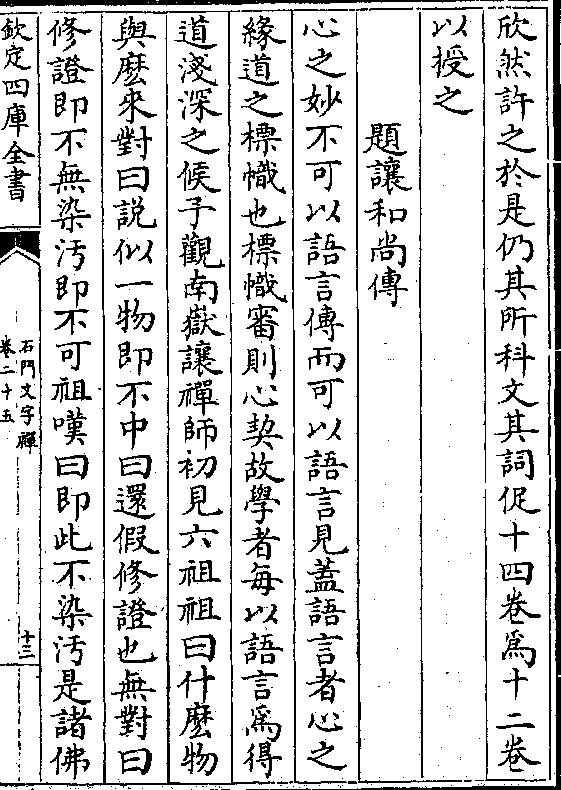 欣然許之於是仍其所科文其詞促十四卷爲十二卷
以授之
題讓和尚傳
心之妙不可以語言傳而可以語言見蓋語言者心之
緣道之標幟也標幟審則心契故學者每以語言爲得
道淺深之候予觀南嶽讓禪師初見六祖祖曰什麽物
與麽來對曰説似一物即不中曰還假修證也無對曰
修證即不無染汚即不可祖嘆曰即此不染汚是諸佛
欽定四庫全書
石門文字禪
卷二十五
十三